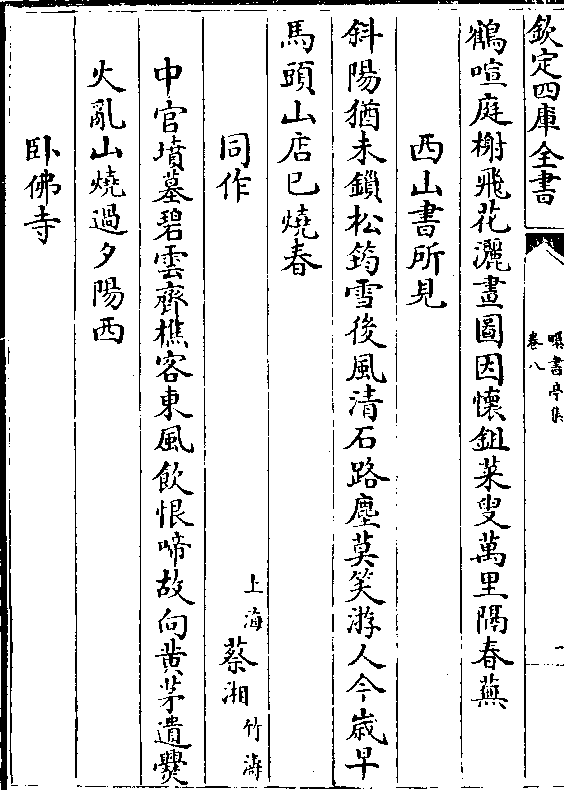 欽定四庫全書
曝書亭集
卷八
鶴喧庭榭飛花灑畫圖因懷鉏菜叟萬里隔春蕪
西山書所見
斜陽猶未鎖松筠雪後風清石路塵莫笑游人今歲早
馬頭山店已燒春
同作
上海蔡湘竹濤
中官墳墓碧雲齊樵客東風飲恨啼故向黄茅遺爨
火亂山燒過夕陽西
卧佛寺